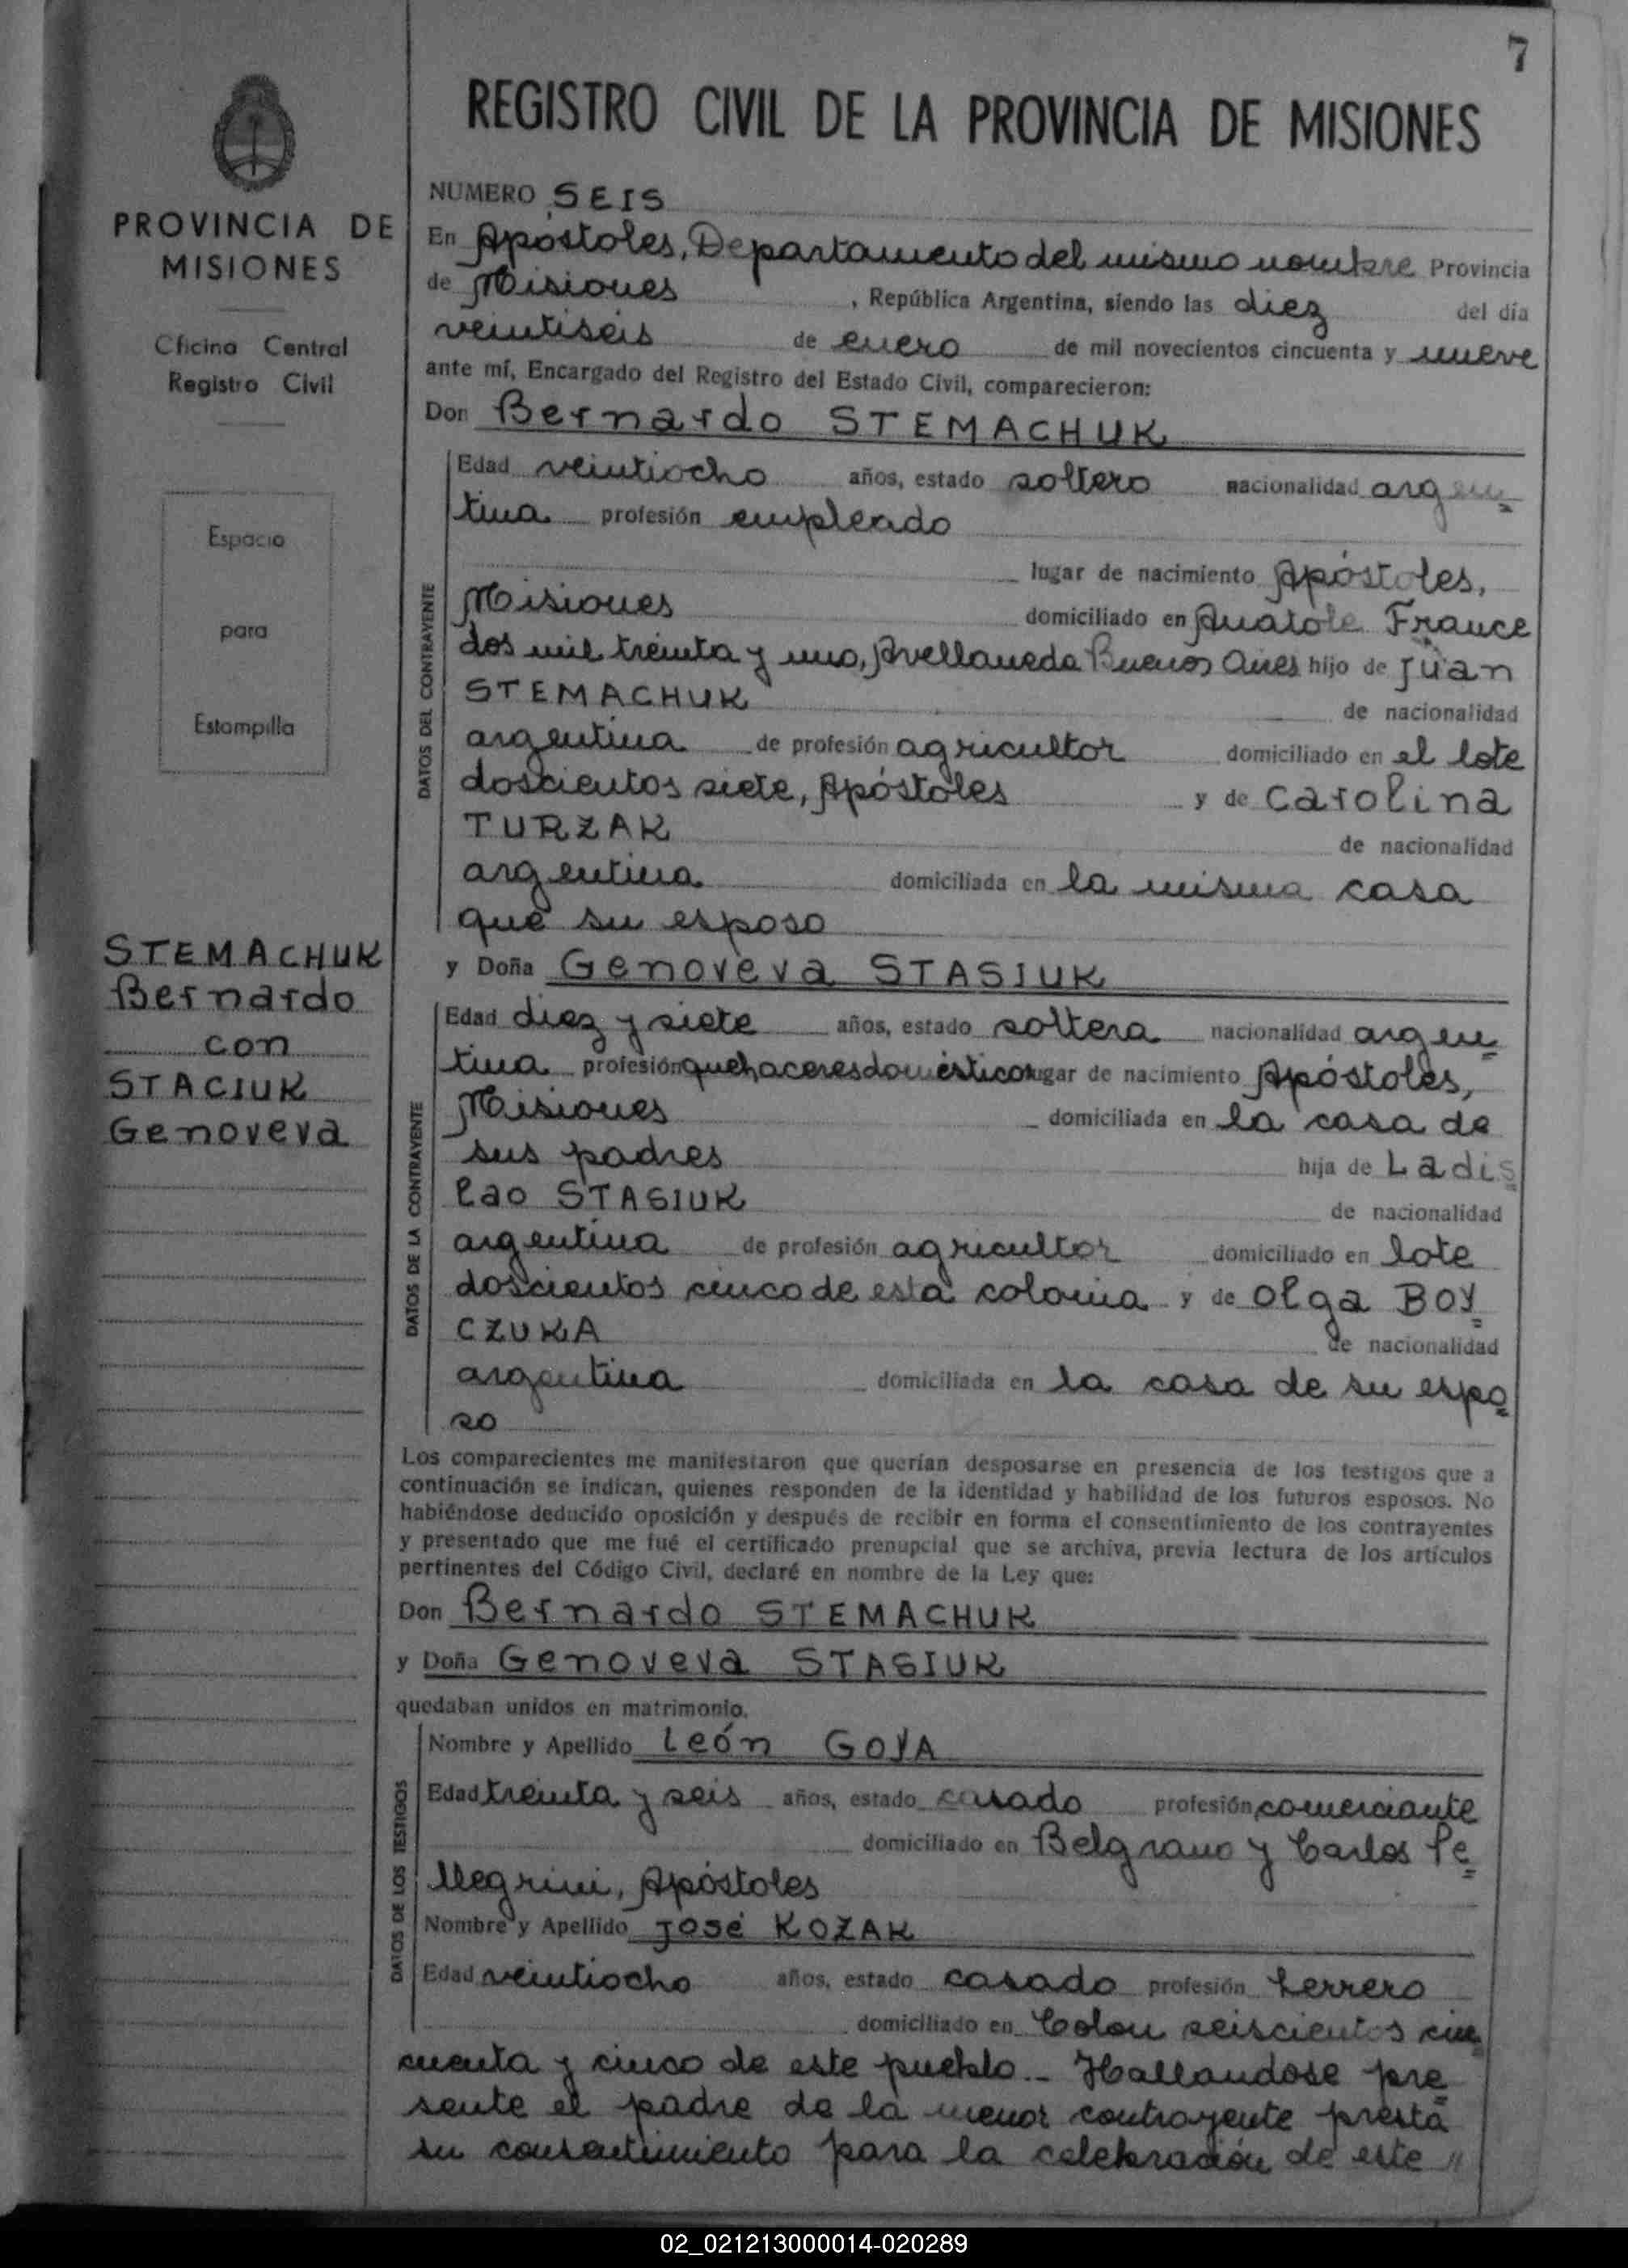 7
REGISTRO CIVIL DE LA PROVINCIA DE MISIONES
PROVINCIA DE
MISIONES
Oficina Central
Registro Civil
Espacio
para
Estampilla
STEMACHUK
Bernardo
con
STACIUK
Genoveva
NUMERO SEIS
En Apóstoles, Departamento del mismo nombre Provincia
de Misiones, República Argentina, siendo las diez del día
veintiseis de enero de mil novecientos cincuenta y nueve
ante mí, Encargado del Registro del Estado Civil, comparecieron:
Don Bernardo STEMACHUK
DATOS DEL CONTRAYENTE
Edad veintiocho años, estado soltero nacionalidad argen=
tina profesión empleado
lugar de nacimiento Apóstoles,
Misiones domiciliado en Anatole France
dos mil treinta y uno, Avellaneda Buenos Aires hijo de Juan
STEMACHUK de nacionalidad
argentina de profesión agricultor domiciliado en el lote
doscientos siete, Apóstoles y de Carolina
TURZAK de nacionalidad
argentina domiciliada en la misma casa
que su esposo
y Doña Genoveva STASIUK
DATOS DE LA CONTRAYENTE
Edad diez y siete años, estado soltera nacionalidad argen=
tina profesión quehaceres domésticos lugar de nacimiento Apóstoles,
Misiones domiciliada en la casa de
sus padres hija de Ladis
lao STASIUK de nacionalidad
argentina de profesión agricultor domiciliado en lote
doscientos cinco de esta colonia y de Olga BOY=
CZUKA de nacionalidad
argentina domiciliada en la casa de su espo=
so
Los comparecientes me manifestaron que querían desposarse en presencia de los testigos que a
continuación se indican, quienes responden de la identidad y habilidad de los futuros esposos. No
habiéndose deducido oposición y después de recibir en forma el consentimiento de los contrayentes
y presentado que me fué el certificado prenupcial que se archiva, previa lectura de los artículos
pertinentes del Código Civil, declaré en nombre de la Ley que:
Don Bernardo STEMACHUK
y Doña Genoveva STASIUK
quedaban unidos en matrimonio.
DATOS DE LOS TESTIGOS
Nombre y Apellido León GOYA
Edad treinta y seis años, estado casado profesión comerciante
domiciliado en Belgrano y Carlos Pe=
llegrini, Apóstoles
Nombre y Apellido José KOZAK
Edad veintiocho años, estado casado profesión herrero
domiciliado en Colon seiscientos cin
cuenta y cinco de este pueblo.- Hallandose pre=
sente el padre de la menor contrayente presta
su consentimiento para la celebración de este //
02_021213000014-020289